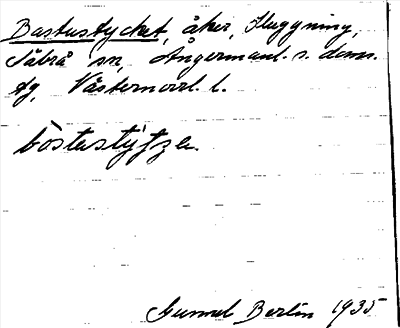 Bastustycket, åker, Huggning,
Säbrå sn, Ångermanl. s. doms.
tg, Västernorrl. l.
bòstustýtze.
Gunnel Berlin 1935